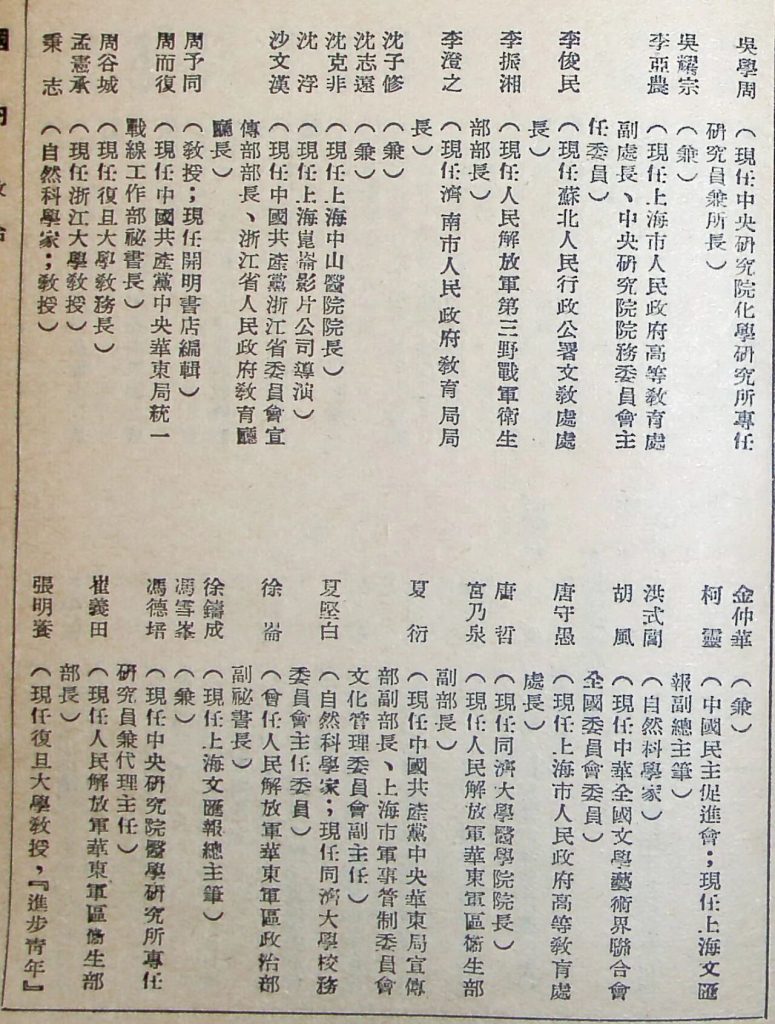 吳學周（現任中央硏究院化學硏究所專任
硏究員兼所長）
吳耀宗（兼）
李亞農（現任上海市人民政府高等敎育處
副處長、中央硏究院院務委員會主
任委員）
李俊民（現任蘇北人民行政公署文敎處處
長）
李振湘（現任人民解放軍第三野戰軍衞生
部部長）
李澄之（現任濟南市人民政府敎育局局
長）
沈子修（兼）
沈志遠（兼）
沈克非（現任上海中山醫院院長）
沈浮（現任上海崑崙影片公司導演）
沙文漢（現任中國共產黨浙江省委員會宣
傳部部長、浙江省人民政府敎育廳
廳長）
周予同（敎授；現任開明書店編輯）
周而復（現任中國共產黨中央華東局統一
戰線工作部祕書長）
周谷城（現任復旦大學敎務長）
孟憲承（現任浙江大學敎授）
秉志（自然科學家；敎授）
金仲華（兼）
柯靈（中國民主促進會；現任上海文匯
報副總主筆）
洪式閭（自然科學家）
胡風（現任中華全國文學藝術界聯合會
全國委員會委員）
唐守愚（現任上海市人民政府高等敎育處
處長）
唐哲（現任同濟大學醫學院院長）
宮乃泉（現任人民解放軍華東軍區衞生部
副部長）
夏衍（現任中國共產黨中央華東局宣傳
部副部長、上海市軍事管制委員會
文化管理委員會副主任）
夏堅白（自然科學家；現任同濟大學校務
委員會主任委員）
徐崙（曾任人民解放軍華東軍區政治部
副祕書長）
徐鑄成（現任上海文匯報總主筆）
馮雪峯（兼）
馮德培（現任中央硏究院醫學硏究所專任
硏究員兼代理主任）
崔義田（現任人民解放軍華東軍區衞生部
部長）
張明養（現任復旦大學敎授，『進步靑年』
國內